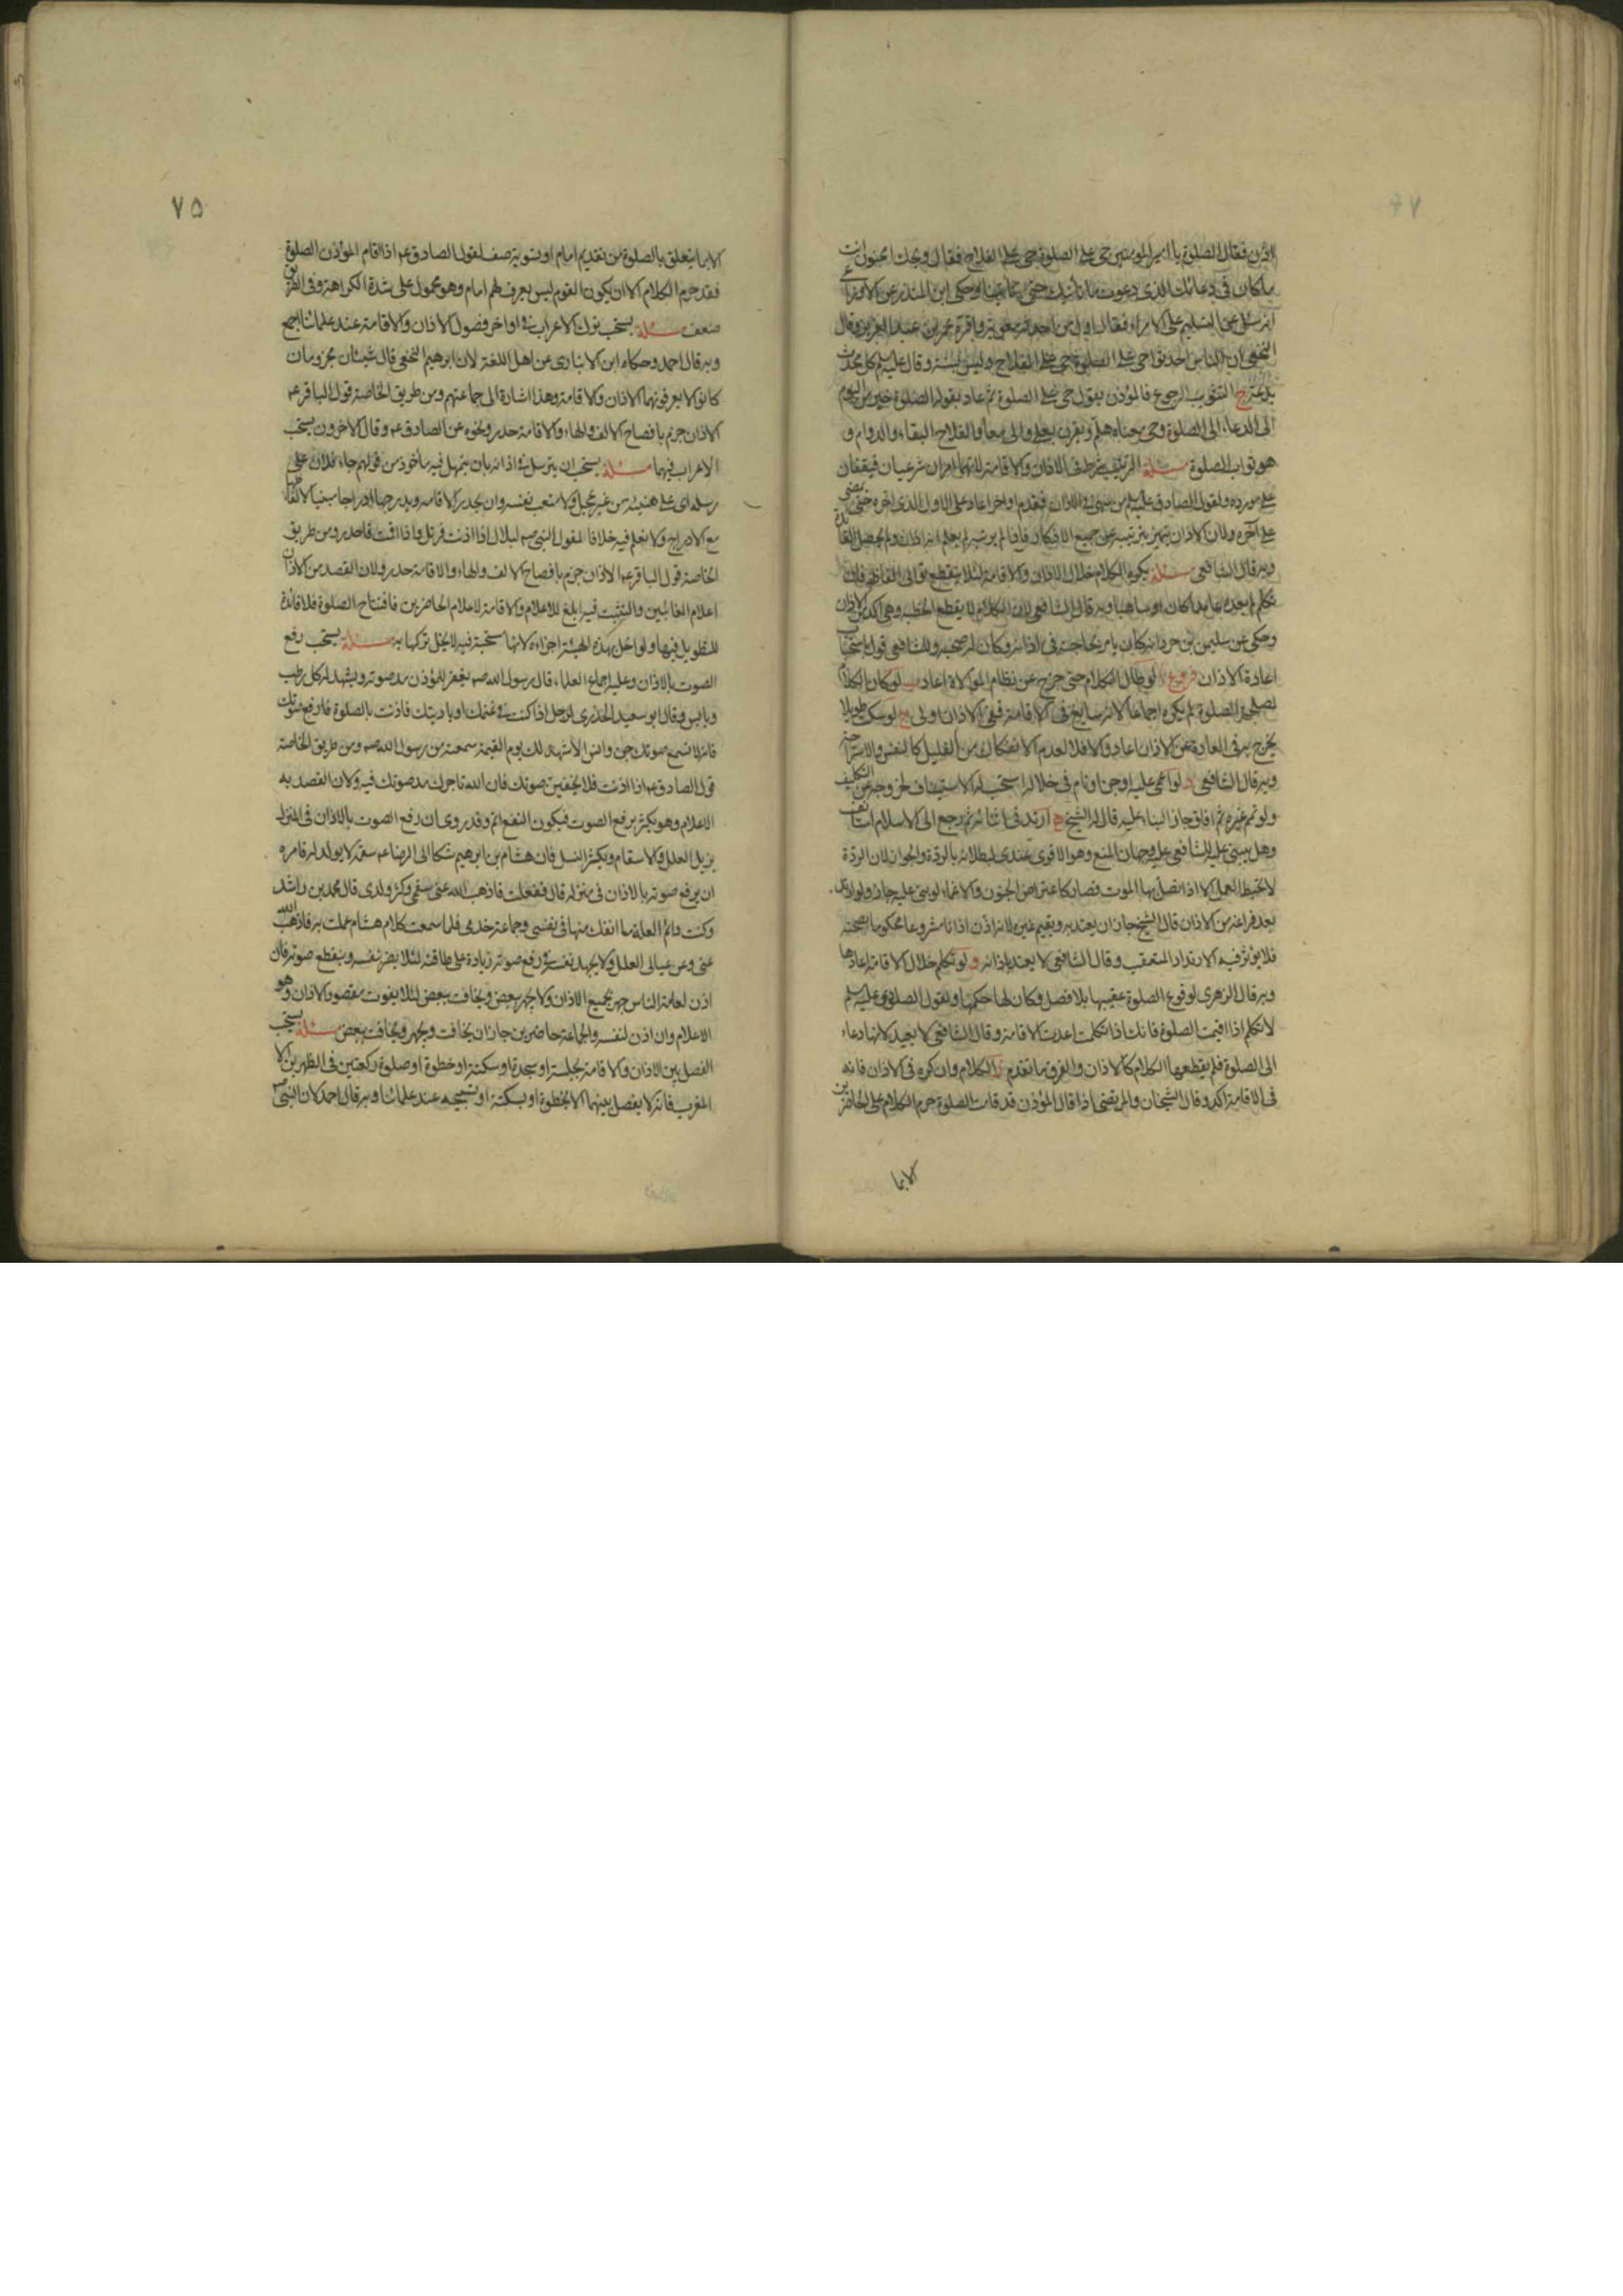 اذن فقال الصلوة يا امير المومنين حى على الصلوة حى على الفلاح فقال ويحك امجنون انت
ما كان فى دعائك الذى دعوت ما نأتيك حتى تأتينا وحكى ابن المنذر عن الاوزاعى
انه سئل عن التسليم على الامراء فقال اول من احدثه معوية واقره عمر بن عبد العزيز وقال
النخعى ان الناس احدثوا حى على الصلوة حى على الفلاح وليس بسنة وقال عليلم كل محدث
بدعة ج التثويب الرجوع فالمؤذن يقول حى على الصلوة ثم عاد بقوله الصلوة خير من النوم
الى الدعاء الى الصلوة وحى معناه هلم وتقرن بعلى والى معا والفلاح البقاء والدوام و
هو ثواب الصلوة مسئلة الترتيب شرط فى الاذان والاقامة لانهما امران شرعيان فيقفان
على مورده ولقول الصادق عليلم من سهى فى الاذان فقدم او اخر اعاد على الاول الذى اخره حتى يمضى
على آخره ولان الاذان يتميز بترتيبه عن جميع الاذكار فاذا لم يرتبه لم يعلم انه اذان ولم يحصل الفائدة
وبه قال الشافعى مسئلة يكره الكلام خلال الاذان والاقامة لئلا ينقطع توالى الفاظه فان
تكلم لم يعده عامدا كان او ساهيا وبه قال الشافعى لان الكلام لا يقطع الخطبة وهى آكد من الاذان
وحكى عن سليمن بن صرد انه كان يامر بحاجته فى اذانه وكان له صحبة وللشافعى قول باستحباب
اعادة الاذان فروع ا لو طال الكلام حتى خرج عن نظام الموالاة اعاد ب لو كان الكلام
لمصلحة الصلوة لم يكره اجماعا لانه سايغ فى الاقامة ففى الاذان اولى ج لو سكت طويلا
يخرج به فى العادة عن الاذان اعاد والا فلا لعدم الانفكاك من القليل كالنفس والاستراحة
وبه قال الشافعى د لو اغمى عليه او جن او نام فى خلاله استحب له الاستيناف لخروجه عن التكليف
ولو تم غيره ثم افاق جاز البناء عليه قاله الشيخ ه ارتد فى اثنائه ثم رجع الى الاسلام استانف
وهل يبنى عليه للشافعى عليه وجهان المنع وهو الاقوى عندى لبطلانه بالردة والجواز لان الردة
لا تحبط العمل الا اذا اتصل بها الموت فصار كاعتراض الجنون والاغماء لو بنى عليه جاز ولو ارتد
بعد فراغه من الاذان قال الشيخ جاز ان يعتد به ويقيم غيره لانه اذن اذانا مشروعا محكوما بصحته
فلا يؤثر فيه الارتداد المتعقب وقال الشافعى لا يعتد باذانه و لو تكلم خلال الاقامة اعادها
وبه قال الزهرى لوقوع الصلوة عقيبها بلا فصل فكان لها حكمها ولقول الصادق عليلم
لا تتكلم اذا اقيمت الصلوة فانك اذا تكلمت اعدت الاقامة وقال الشافعى لا يعيد لانها دعاء
الى الصلوة فلم يقطعها الكلام كالاذان والفرق ما تقدم ز الكلام وان كره فى الاذان فانه
فى الاقامة آكد وقال الشيخان والمرتضى اذا قال المؤذن قد قامت الصلوة حرم الكلام على الحاضرين
الا بما
٧٥
الا بما يتعلق بالصلوة من تقديم امام او تسوية صف لقول الصادق عم اذا اقام المؤذن الصلوة
فقد حرم الكلام الا ان يكون القوم ليس يعرف لهم امام وهو محمول على شدة الكراهة وفى الطريق
ضعف مسئلة يستحب ترك الاعراب فى اواخر فصول الاذان والاقامة عند علمائنا اجمع
وبه قال احمد وحكاه ابن الانبارى عن اهل اللغة لان ابرهيم النخعى قال شيئان مجزومان
كانوا لا يعرفونهما الاذان والاقامة وهذا اشارة الى جماعتهم ومن طريق الخاصة قول الباقر عم
الاذان جزم بافصاح الالف والهاء والاقامة حدر ونحوه عن الصادق عم وقال الاخرون يستحب
الاعراب فيهما مسئلة يستحب ان يترسل فى اذانه بان يتمهل فيه مأخوذ من قولهم جاء فلان على
رسله اى على هنيئة من غير عجل ولا متعب نفسه وان يحدر الاقامة ويدرجها ادراجا مبينا الالفاظ
مع الادراج ولا نعلم فيه خلافا لقول النبى صم لبلال اذا اذنت فرتل واذا اقمت فاحدر ومن طريق
الخاصة قول الباقر عم الاذان جزم بافصاح الالف والهاء والاقامة حدر ولان القصد من الاذان
اعلام الغائبين والتثبت فيه ابلغ للاعلام والاقامة لاعلام الحاضرين فافتتاح الصلوة فلا فائدة
للتطويل فيها ولو اخل بهذه الهيئة اجزاءه لانها مستحبة فيه لا يخل تركها به مسئلة يستحب رفع
الصوت بالاذان وعليه اجماع العلماء قال رسول الله صم يغفر للمؤذن مد صوته ويشهد له كل رطب
ويابس وقال ابو سعيد الخدرى لرجل اذا كنت فى غنمك او باديتك فاذنت بالصلوة فارفع صوتك
فانه لا تسمع صوتك جن وانس الا شهد لك يوم القيمة سمعته من رسول الله صم ومن طريق الخاصة
قول الصادق عم اذا اذنت فلا تخفين صوتك فان الله تاجرك مد صوتك فيه ولان القصد به
الاعلام وهو يكثر برفع الصوت فيكون النفع اتم وقد روى ان رفع الصوت بالاذان فى المنزل
يزيل العلل والاسقام ويكثر النسل فان هشام بن ابرهيم شكا الى الرضا عم سقمه لا يولد له فامره
ان يرفع صوته بالاذان فى منزله قال ففعلت فاذهب الله عنى سقمى وكثر ولدى قال محمد بن راشد
وكنت دائم العلة ما انفك منها فى نفسى وجماعة خدمى فلما سمعت كلام هشام عملت به فاذهب الله
عنى وعن عيالى العلل ولا يجهد نفسه فى رفع صوته زيادة على طاقته لئلا يضر نفسه وينقطع صوته فان
اذن لعامة الناس جهر بجميع الاذان ولا يجهر ببعض ويخافت ببعض لئلا يفوت مقصود الاذان وهو
الاعلام وان اذن لنفسه والجماعة حاضرين جاز ان يخافت ويجهر ويخافت ببعض مسئلة يستحب
الفصل بين الاذان والاقامة بجلسة او سجدة او سكتة او خطوة او صلوة ركعتين فى الظهرين الا
المغرب فانه لا يفصل بينهما الا بخطوة او سكتة او تسبيحة عند علمائنا وبه قال احمد لان النبى صم